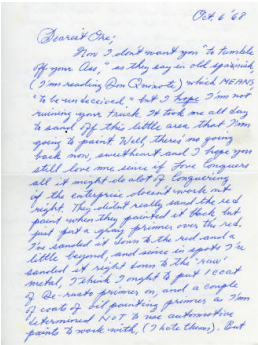 Oct. 6 '68
Dearest One;
Now I don't want you "to tumble
off your Ass," as they say in old spainish
(I'm reading Don Quixote) which MEANS
"to be undeceived," but I hope I'm not
ruining your truck. It took me all day
to sand off this little area that I'm
going to paint. Well, there's no going
back now, sweetheart and I hope you
still love me since if Love Conquers
all it might do alot of Conquering
if the enterprise doesn't work out
right. They didn't really sand the red
paint when they painted it black but
just put a gray primer over the red.
I've sanded it down to the red and a
little beyond, and since in spots I've
sanded it right down to the 'raw'
metal, I think I ought to put 1 coat
of De-rusto primer on, and a couple
of coats of oil painting primer as I'm
determined NOT to use automotive
paints to work with, (I hate them). But